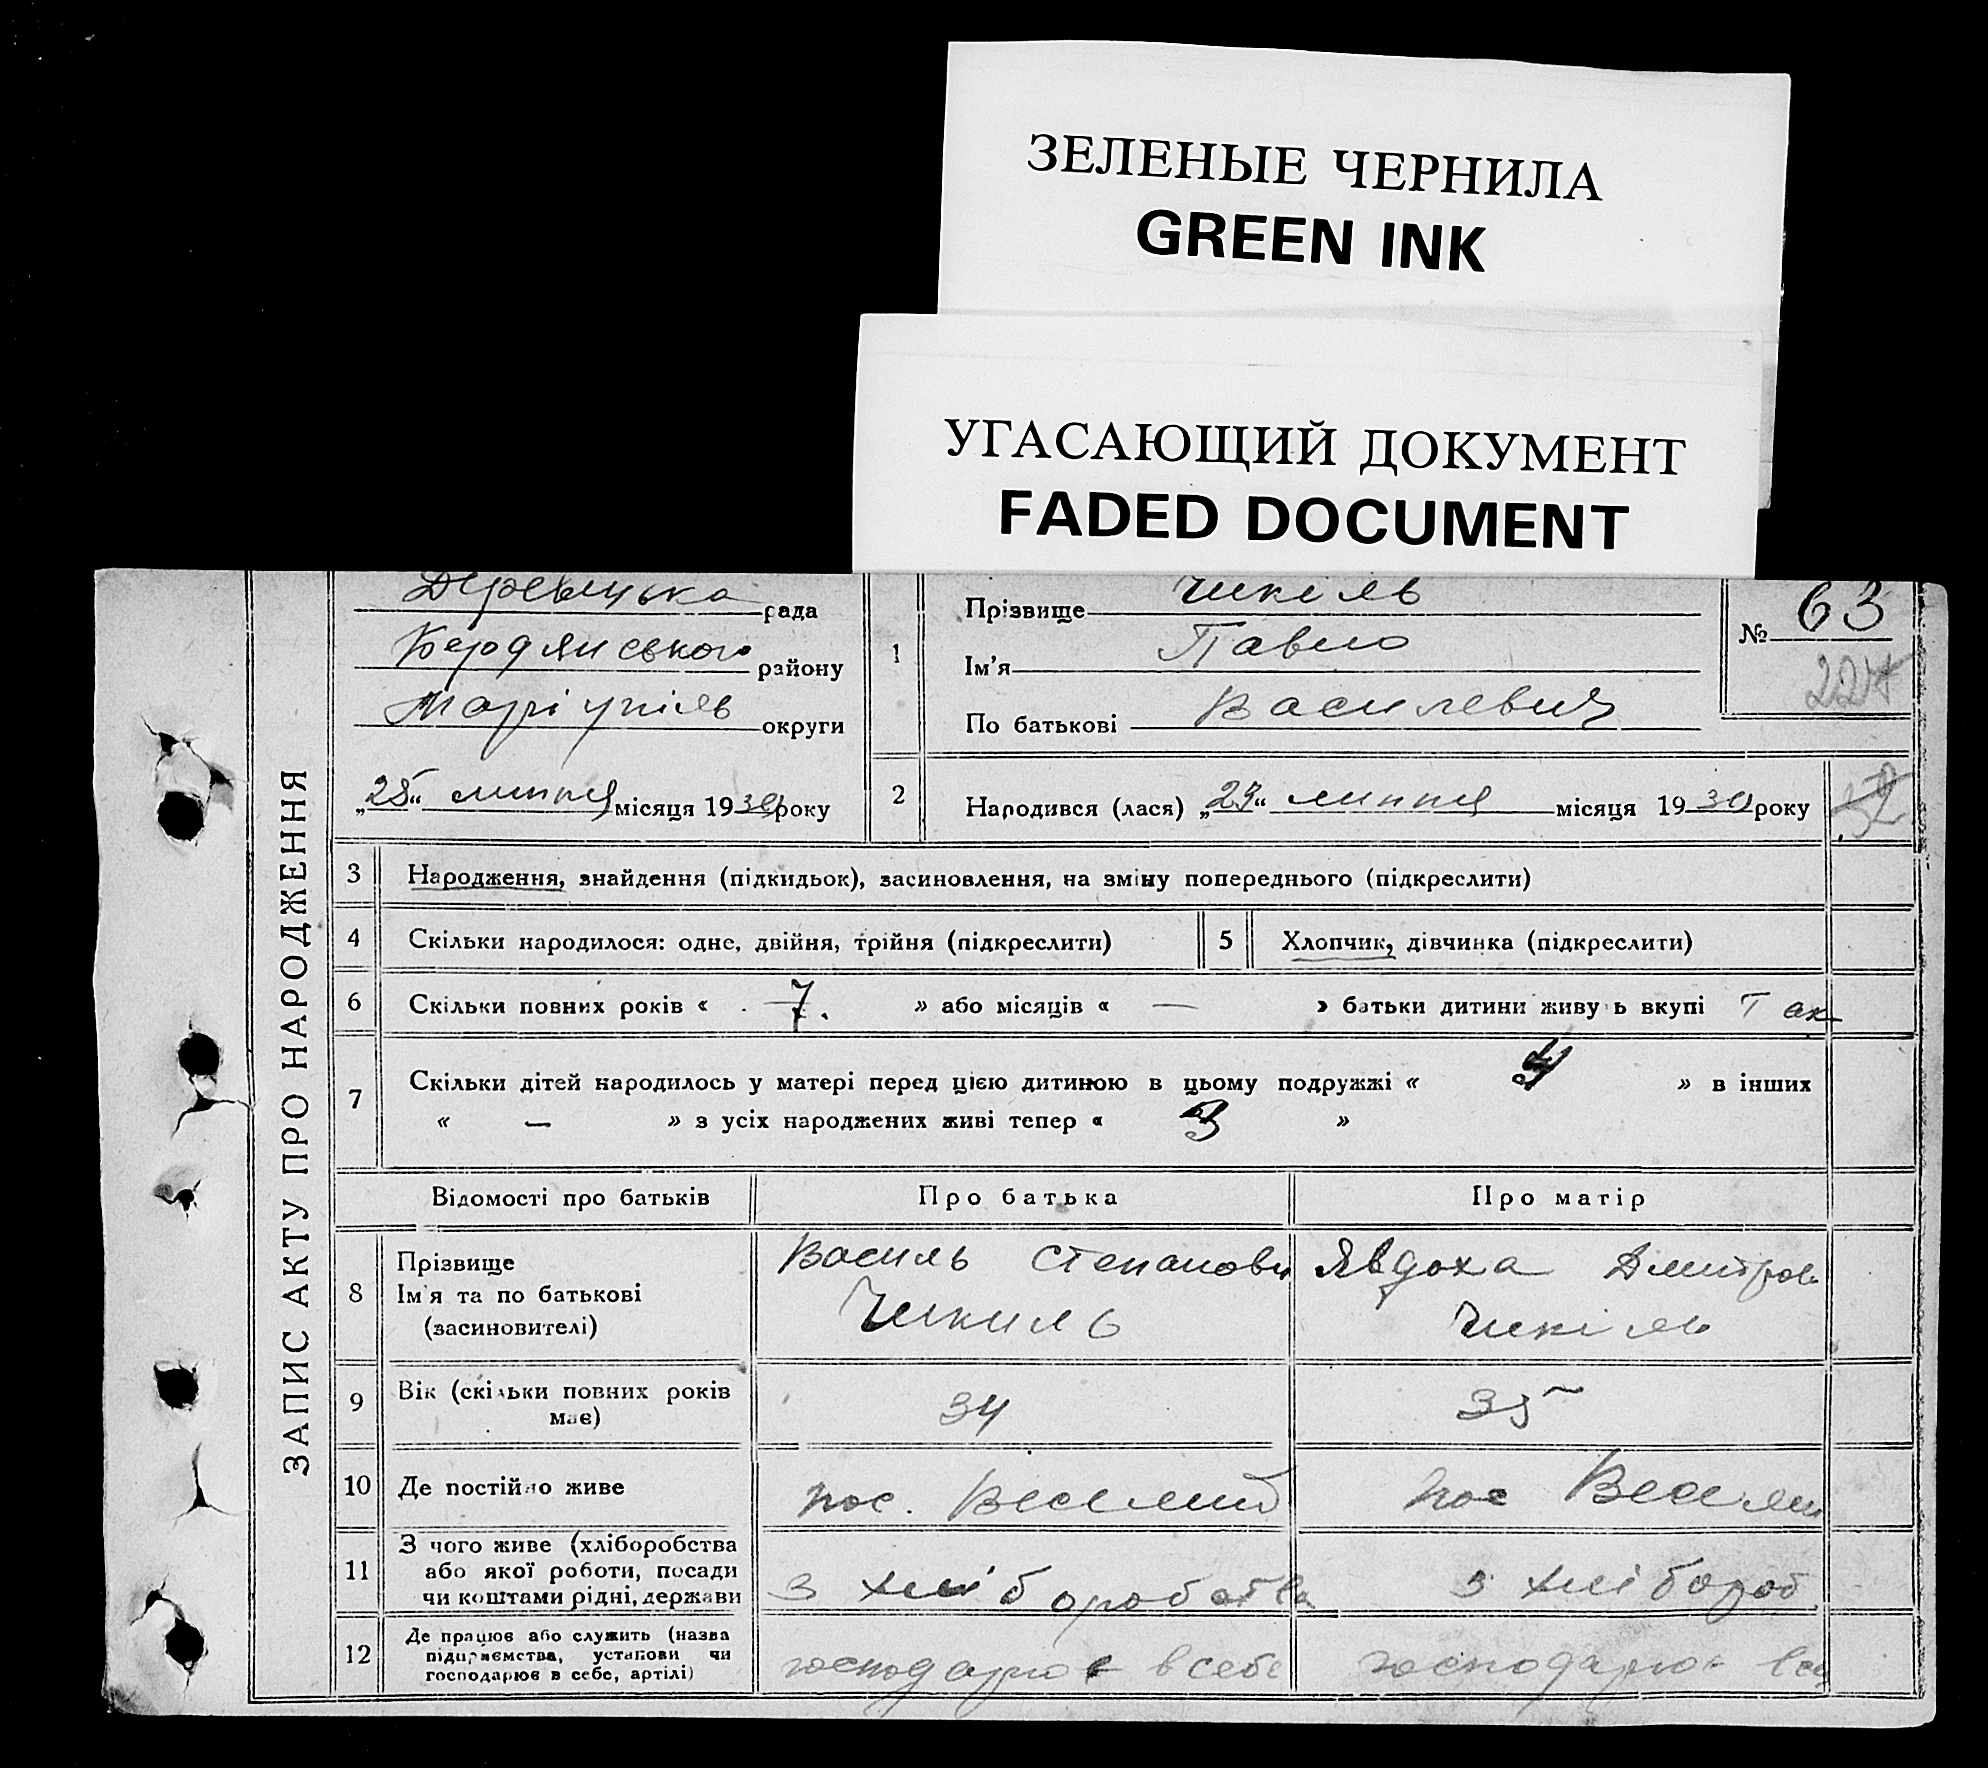 ЗЕЛЕНЫЕ ЧЕРНИЛА
GREEN INK
УГАСАЮЩИЙ ДОКУМЕНТ
FADED DOCUMENT
ЗАПИС АКТУ ПРО НАРОДЖЕННЯ
рада
Бердянського району
Маріупіль округи
„25“ липня місяця 1930 року
1
Прізвище Чикіль
Ім'я Павло
По батькові Василевич
№ 63
224
2 Народився (лася) „23“ липня місяця 1930 року
32
3 Народження, знайдення (підкидьок), засиновлення, на зміну попереднього (підкреслити)
4 Скільки народилося: одне, двійня, трійня (підкреслити)
5 Хлопчик, дівчинка (підкреслити)
6 Скільки повних років « 7. » або місяців « — » батьки дитини живуть вкупі Так
7 Скільки дітей народилось у матері перед цією дитиною в цьому подружжі « 4 » в інших
« — » з усіх народжених живі тепер « 3 »
Відомості про батьків Про батька Про матір
8 Прізвище
Ім'я та по батькові
(засиновителі)
Василь Степанови
Чикиль
Явдоха Дмитров
Чикіль
9 Вік (скільки повних років
має)
34
35
10 Де постійно живе
пос. Веселий
пос Весели
11 З чого живе (хліборобства
або якої роботи, посади
чи коштами рідні, держави
З хліборобства
з хлібороб
12 Де працює або служить (назва
підприємства, установи чи
господарює в себе, артілі)
господарює в себе
господарює в се